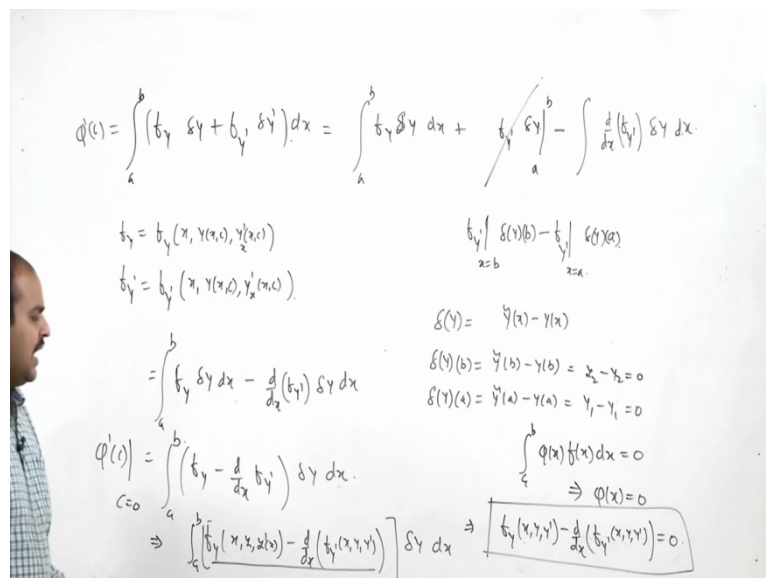 φ'(c) = ∫_a^b (f_y δy + f_y' δy') dx = ∫_a^b f_y δy dx + f_y' δy |_a^b − ∫ d/dx (f_y') δy dx.
f_y = f_y (x, y(x,c), y'_x(x,c))
f_y' = f_y' (x, y(x,c), y'_x(x,c)).
f_y'|_{x=b} δ(y)(b) − f_y'|_{x=a.} δ(y)(a).
δ(y) = ỹ(x) − y(x)
δ(y)(b) = ỹ(b) − y(b) = y_2 − y_2 = 0
δ(y)(a) = ỹ(a) − y(a) = y_1 − y_1 = 0
= ∫_a^b f_y δy dx − d/dx (f_y') δy dx
φ'(c)|_{c=0} = ∫_a^b (f_y − d/dx f_y') δy dx.
∫_a^b φ(x) f(x) dx = 0
⇒ φ(x) = 0
⇒ ∫_a^b [f_y (x, y, y'(x)) − d/dx (f_y'(x,y,y'))] δy dx ⇒ f_y (x,y,y') − d/dx (f_y'(x,y,y')) = 0.